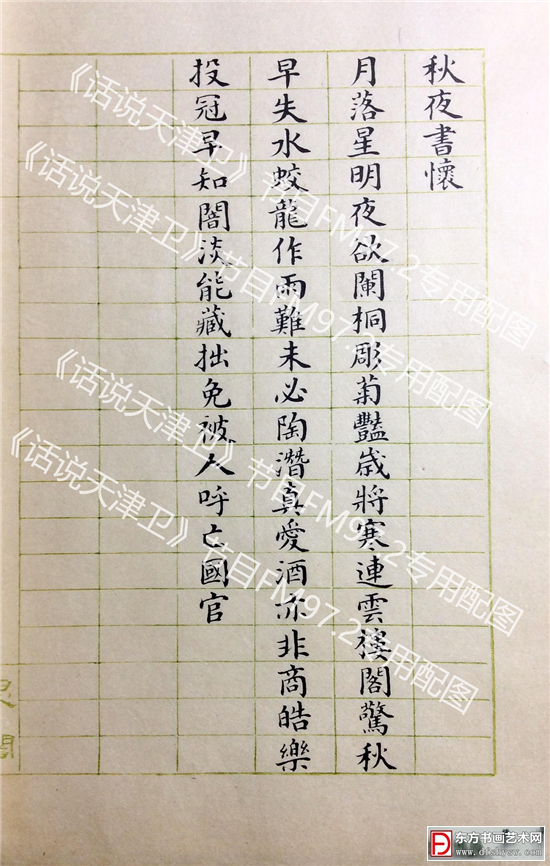 秋夜書懷
月落星明夜欲闌桐彫菊豔歲將寒連雲樓閣驚秋
早失水蛟龍作雨難未必陶潛真愛酒亦非商皓樂
投冠早知闇淡能藏拙免被人呼亡國官
《话说天津卫》节目FM97.2专用配图
《话说天津卫》节目FM97.2专用配图
《话说天津卫》节目FM97.2专用配图
《话说天津卫》节目FM97.2专用配图
东方书画艺术网
www.dfshysw.com